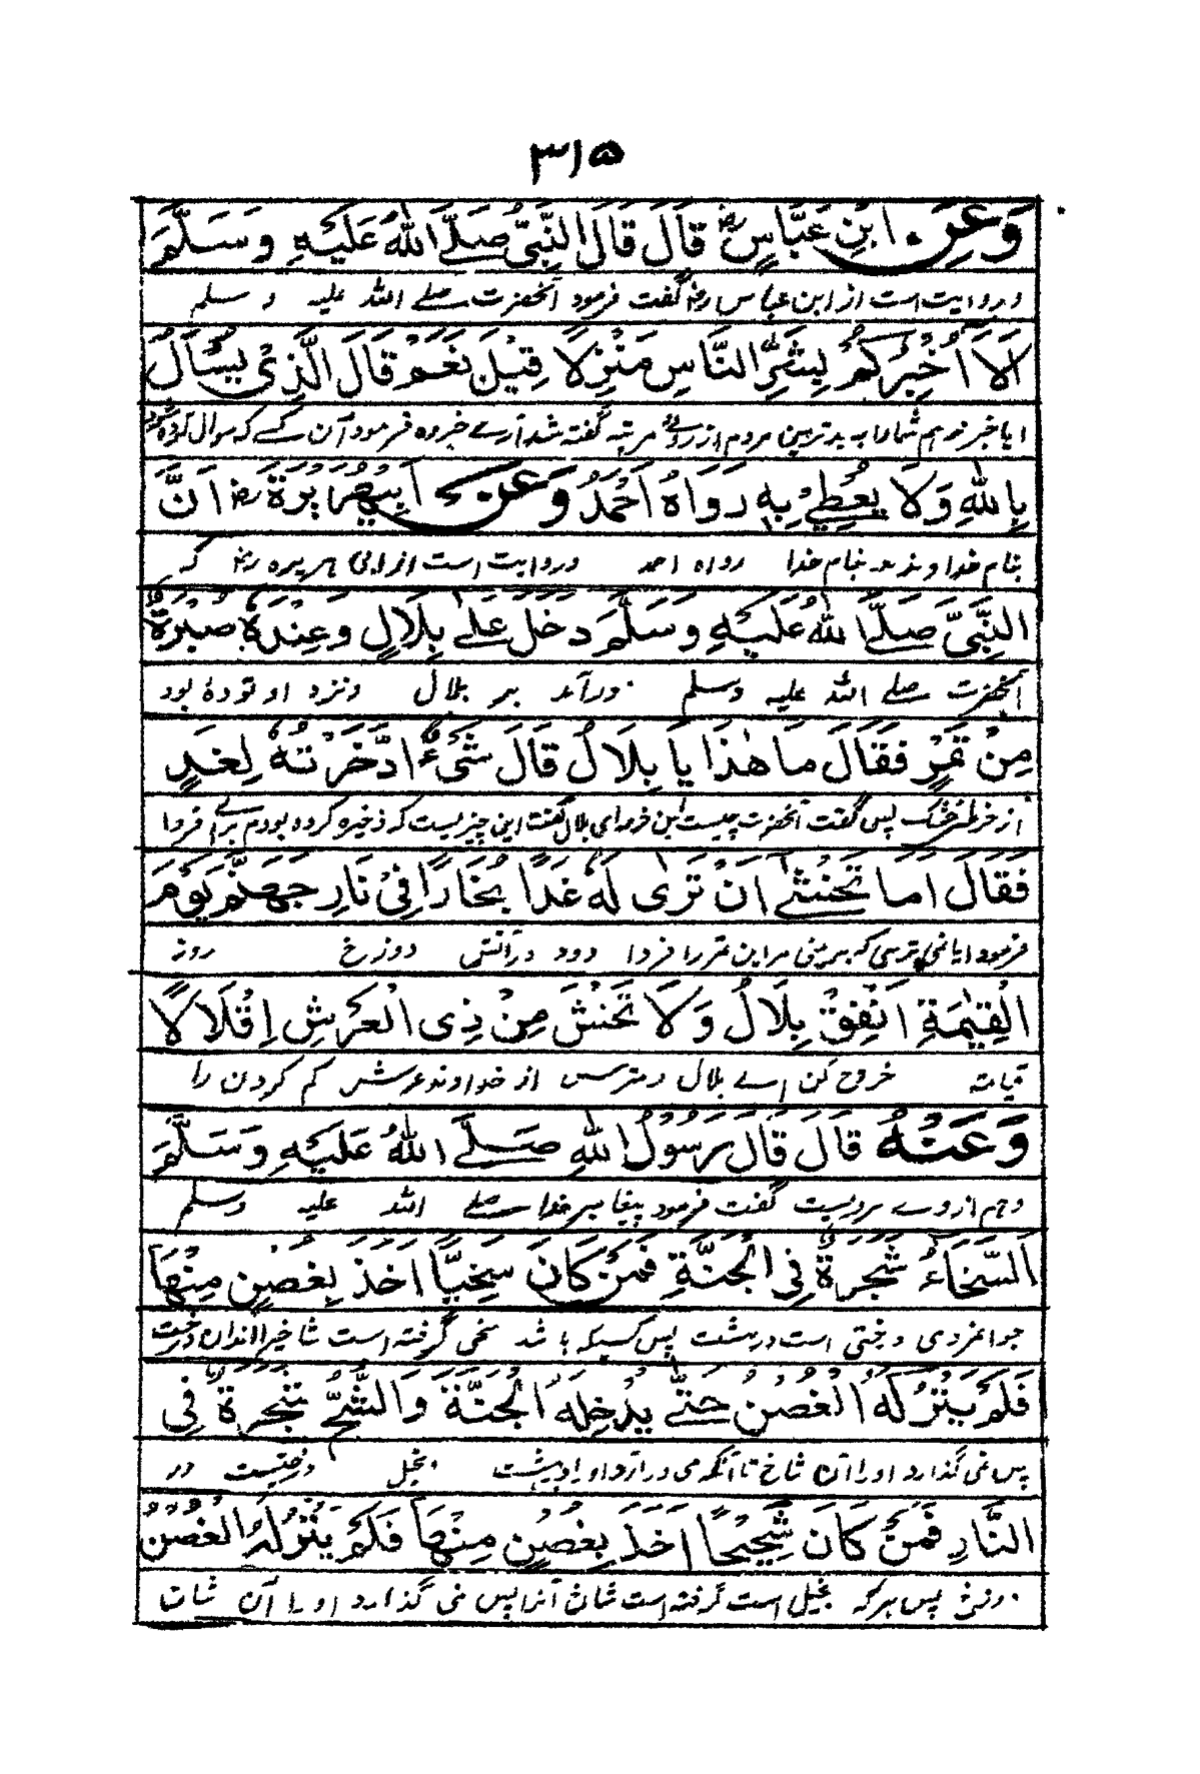 ۳۱۵
وَعَنِ ابْنِ عَبَّاسٍ رض قَالَ قَالَ النَّبِيُّ صَلَّے اللّٰهُ عَلَيْهِ وَسَلَّمَ
و روایت است از ابن عباس رض گفت فرمود آنحضرت صلے اللہ علیہ و سلم
اَلَا اُخْبِرُكُمْ بِشَرِّ النَّاسِ مَنْزِلًا قِيْلَ نَعَمْ قَالَ الَّذِیْ يُسْأَلُ
ایا خبر ندهم شما را به بدترین مردم از روے مرتبه گفته شد آرے خبر ده فرمود آن کسے که سوال کرده شود
بِاللّٰهِ وَلَا يُعْطِیْ بِهٖ رَوَاهُ اَحْمَدُ وَعَنْ اَبِیْ هُرَيْرَةَ رض اَنَّ
بنام خدا و ندهد بنام خدا رواه احمد و روایت است از ابی هریره رض که
النَّبِيَّ صَلَّے اللّٰهُ عَلَيْهِ وَسَلَّمَ دَخَلَ عَلٰے بِلَالٍ وَعِنْدَهٗ صُبْرَةٌ
آنحضرت صلے اللہ علیہ وسلم درآمد بر بلال و نزد او تودۂ بود
مِنْ تَمْرٍ فَقَالَ مَا هٰذَا يَا بِلَالُ قَالَ شَیْءٌ ادَّخَرْتُهٗ لِغَدٍ
از خرمائے خشک پس گفت آنحضرت چیست این خرما ای بلال گفت این چیزیست که ذخیره کرده بودم براے فردا
فَقَالَ اَمَا تَخْشٰے اَنْ تَرٰی لَهٗ غَدًا بُخَارًا فِیْ نَارِ جَهَنَّمَ يَوْمَ
فرمود ایا نمی ترسی که ببینی مر این تمر را فردا دود در آتش دوزخ روز
الْقِيٰمَةِ اَنْفِقْ بِلَالُ وَلَا تَخْشَ مِنْ ذِی الْعَرْشِ اِقْلَالًا
قیامت خرچ کن اے بلال و مترس از خداوند عرش کم کردن را
وَعَنْهُ قَالَ قَالَ رَسُوْلُ اللّٰهِ صَلَّے اللّٰهُ عَلَيْهِ وَسَلَّمَ
و هم از وے مرویست گفت فرمود پیغامبر خدا صلے اللہ علیہ وسلم
اَلسَّخَاءُ شَجَرَةٌ فِی الْجَنَّةِ فَمَنْ كَانَ سَخِيًّا اَخَذَ بِغُصْنٍ مِنْهَا
جوانمردی درختی است در بهشت پس کسیکه باشد سخی گرفته است شاخی را ازان درخت
فَلَمْ يَتْرُكْهُ الْغُصْنُ حَتّٰے يُدْخِلَهُ الْجَنَّةَ وَالشُّحُّ شَجَرَةٌ فِی
پس نمی گذارد او را آن شاخ تا آنکه می درآرد او را در بهشت و بخل درختیست در
النَّارِ فَمَنْ كَانَ شَحِيْحًا اَخَذَ بِغُصْنٍ مِنْهَا فَلَمْ يَتْرُكْهُ الْغُصْنُ
دوزخ پس هرکه بخیل است گرفته است شاخ آنرا پس نمی گذارد او را آن شاخ